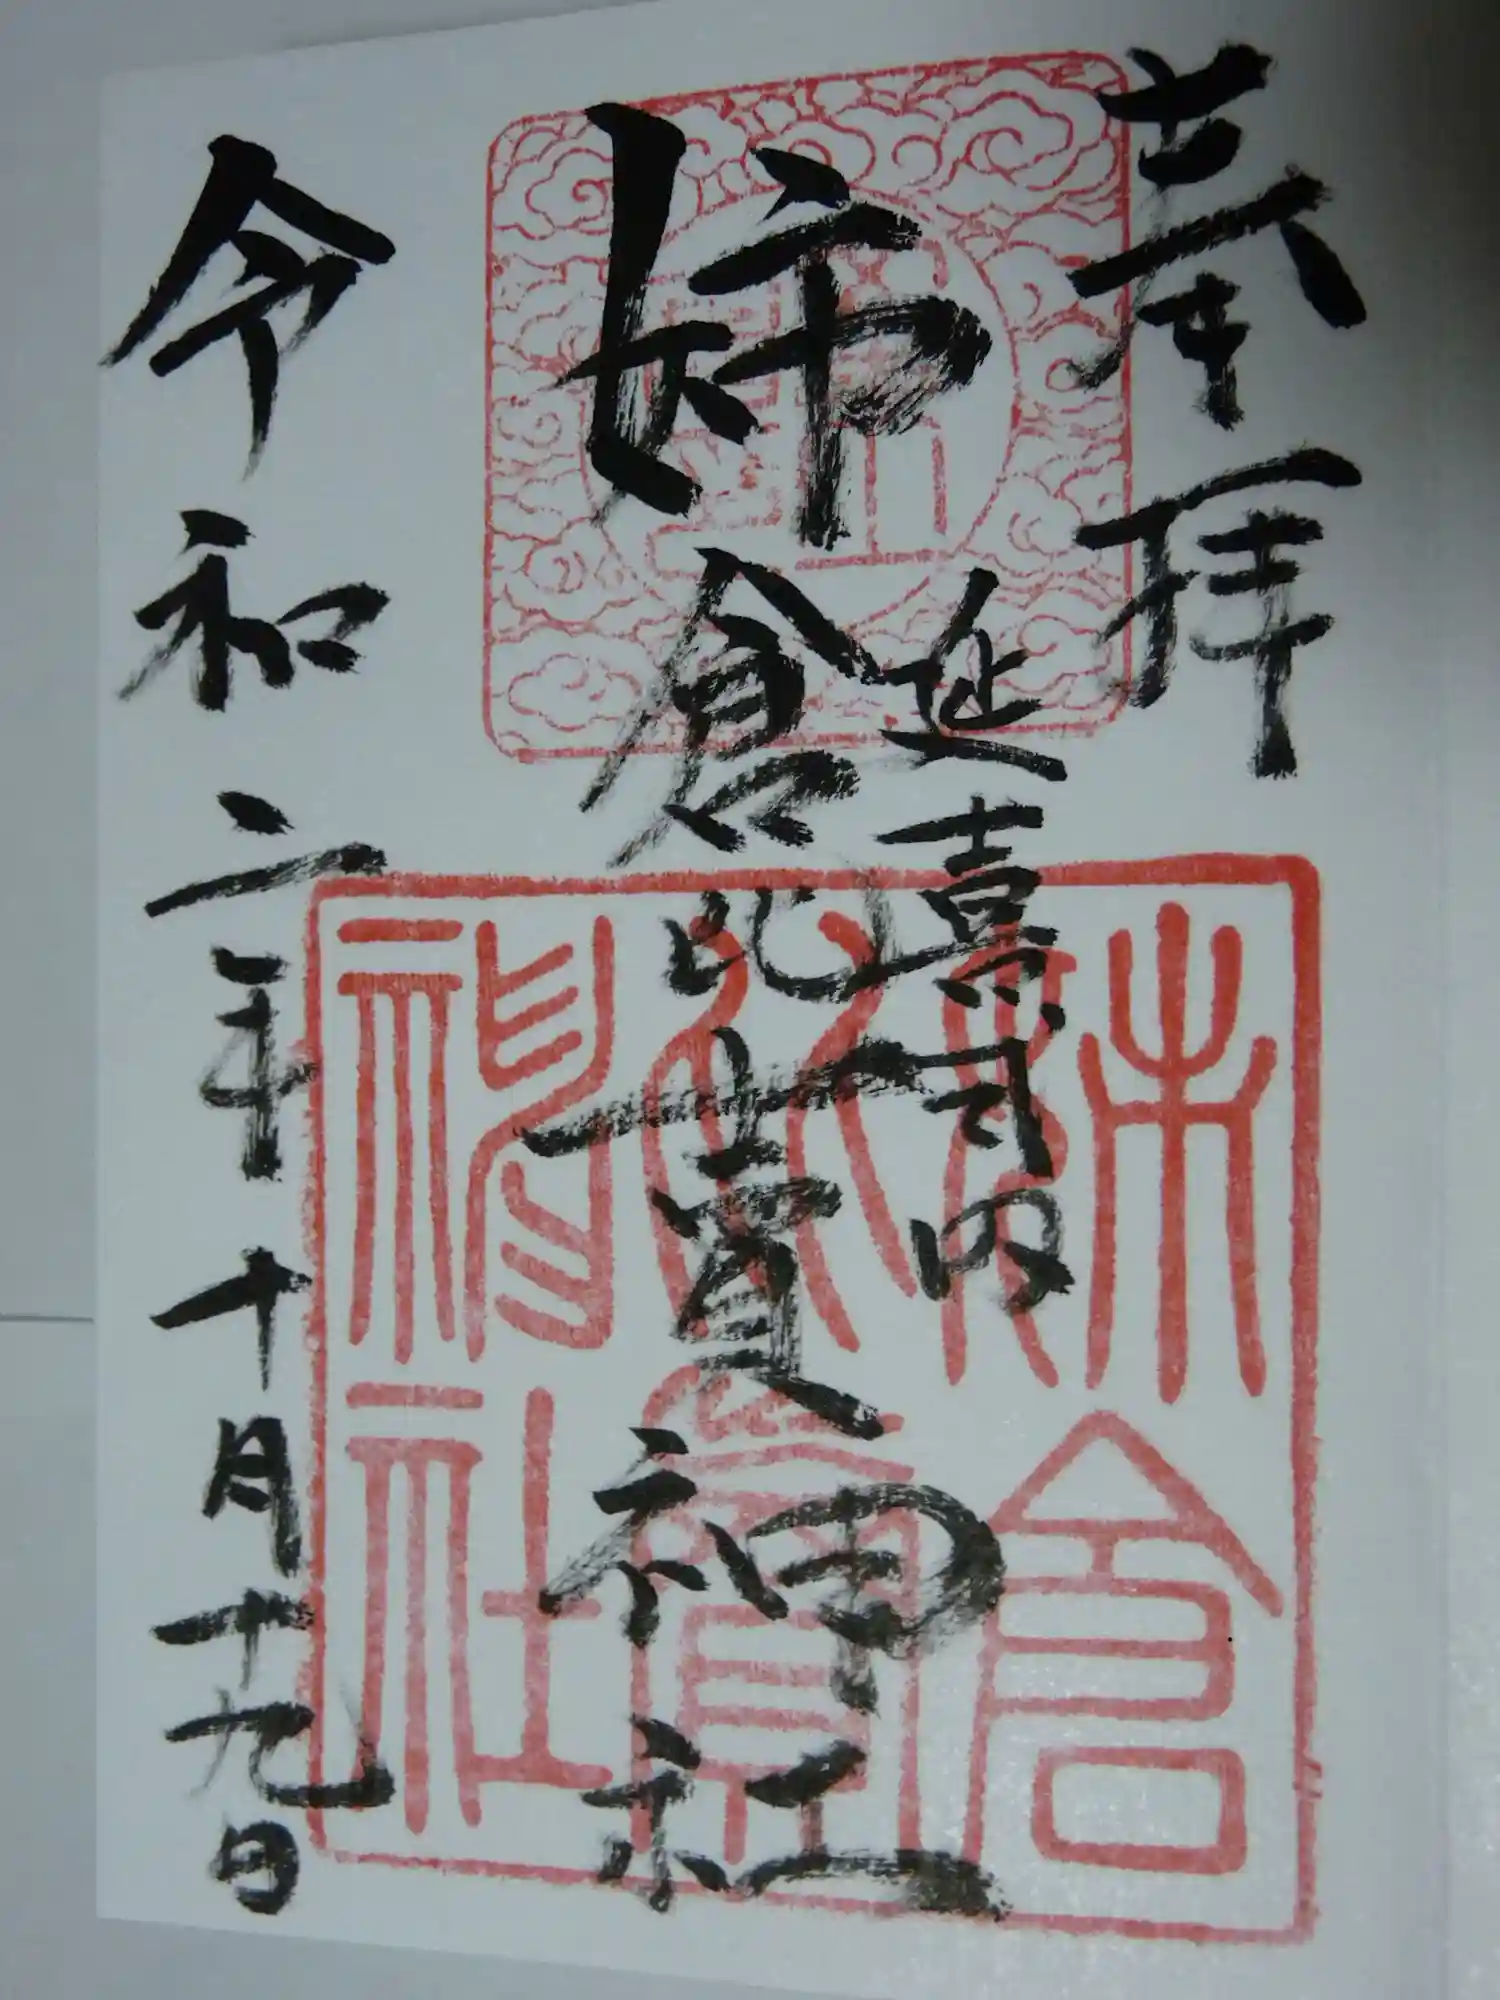 奉拝
延喜式内
姉倉比賣神社
令和二年十月十九日
姉倉
比賣
神社